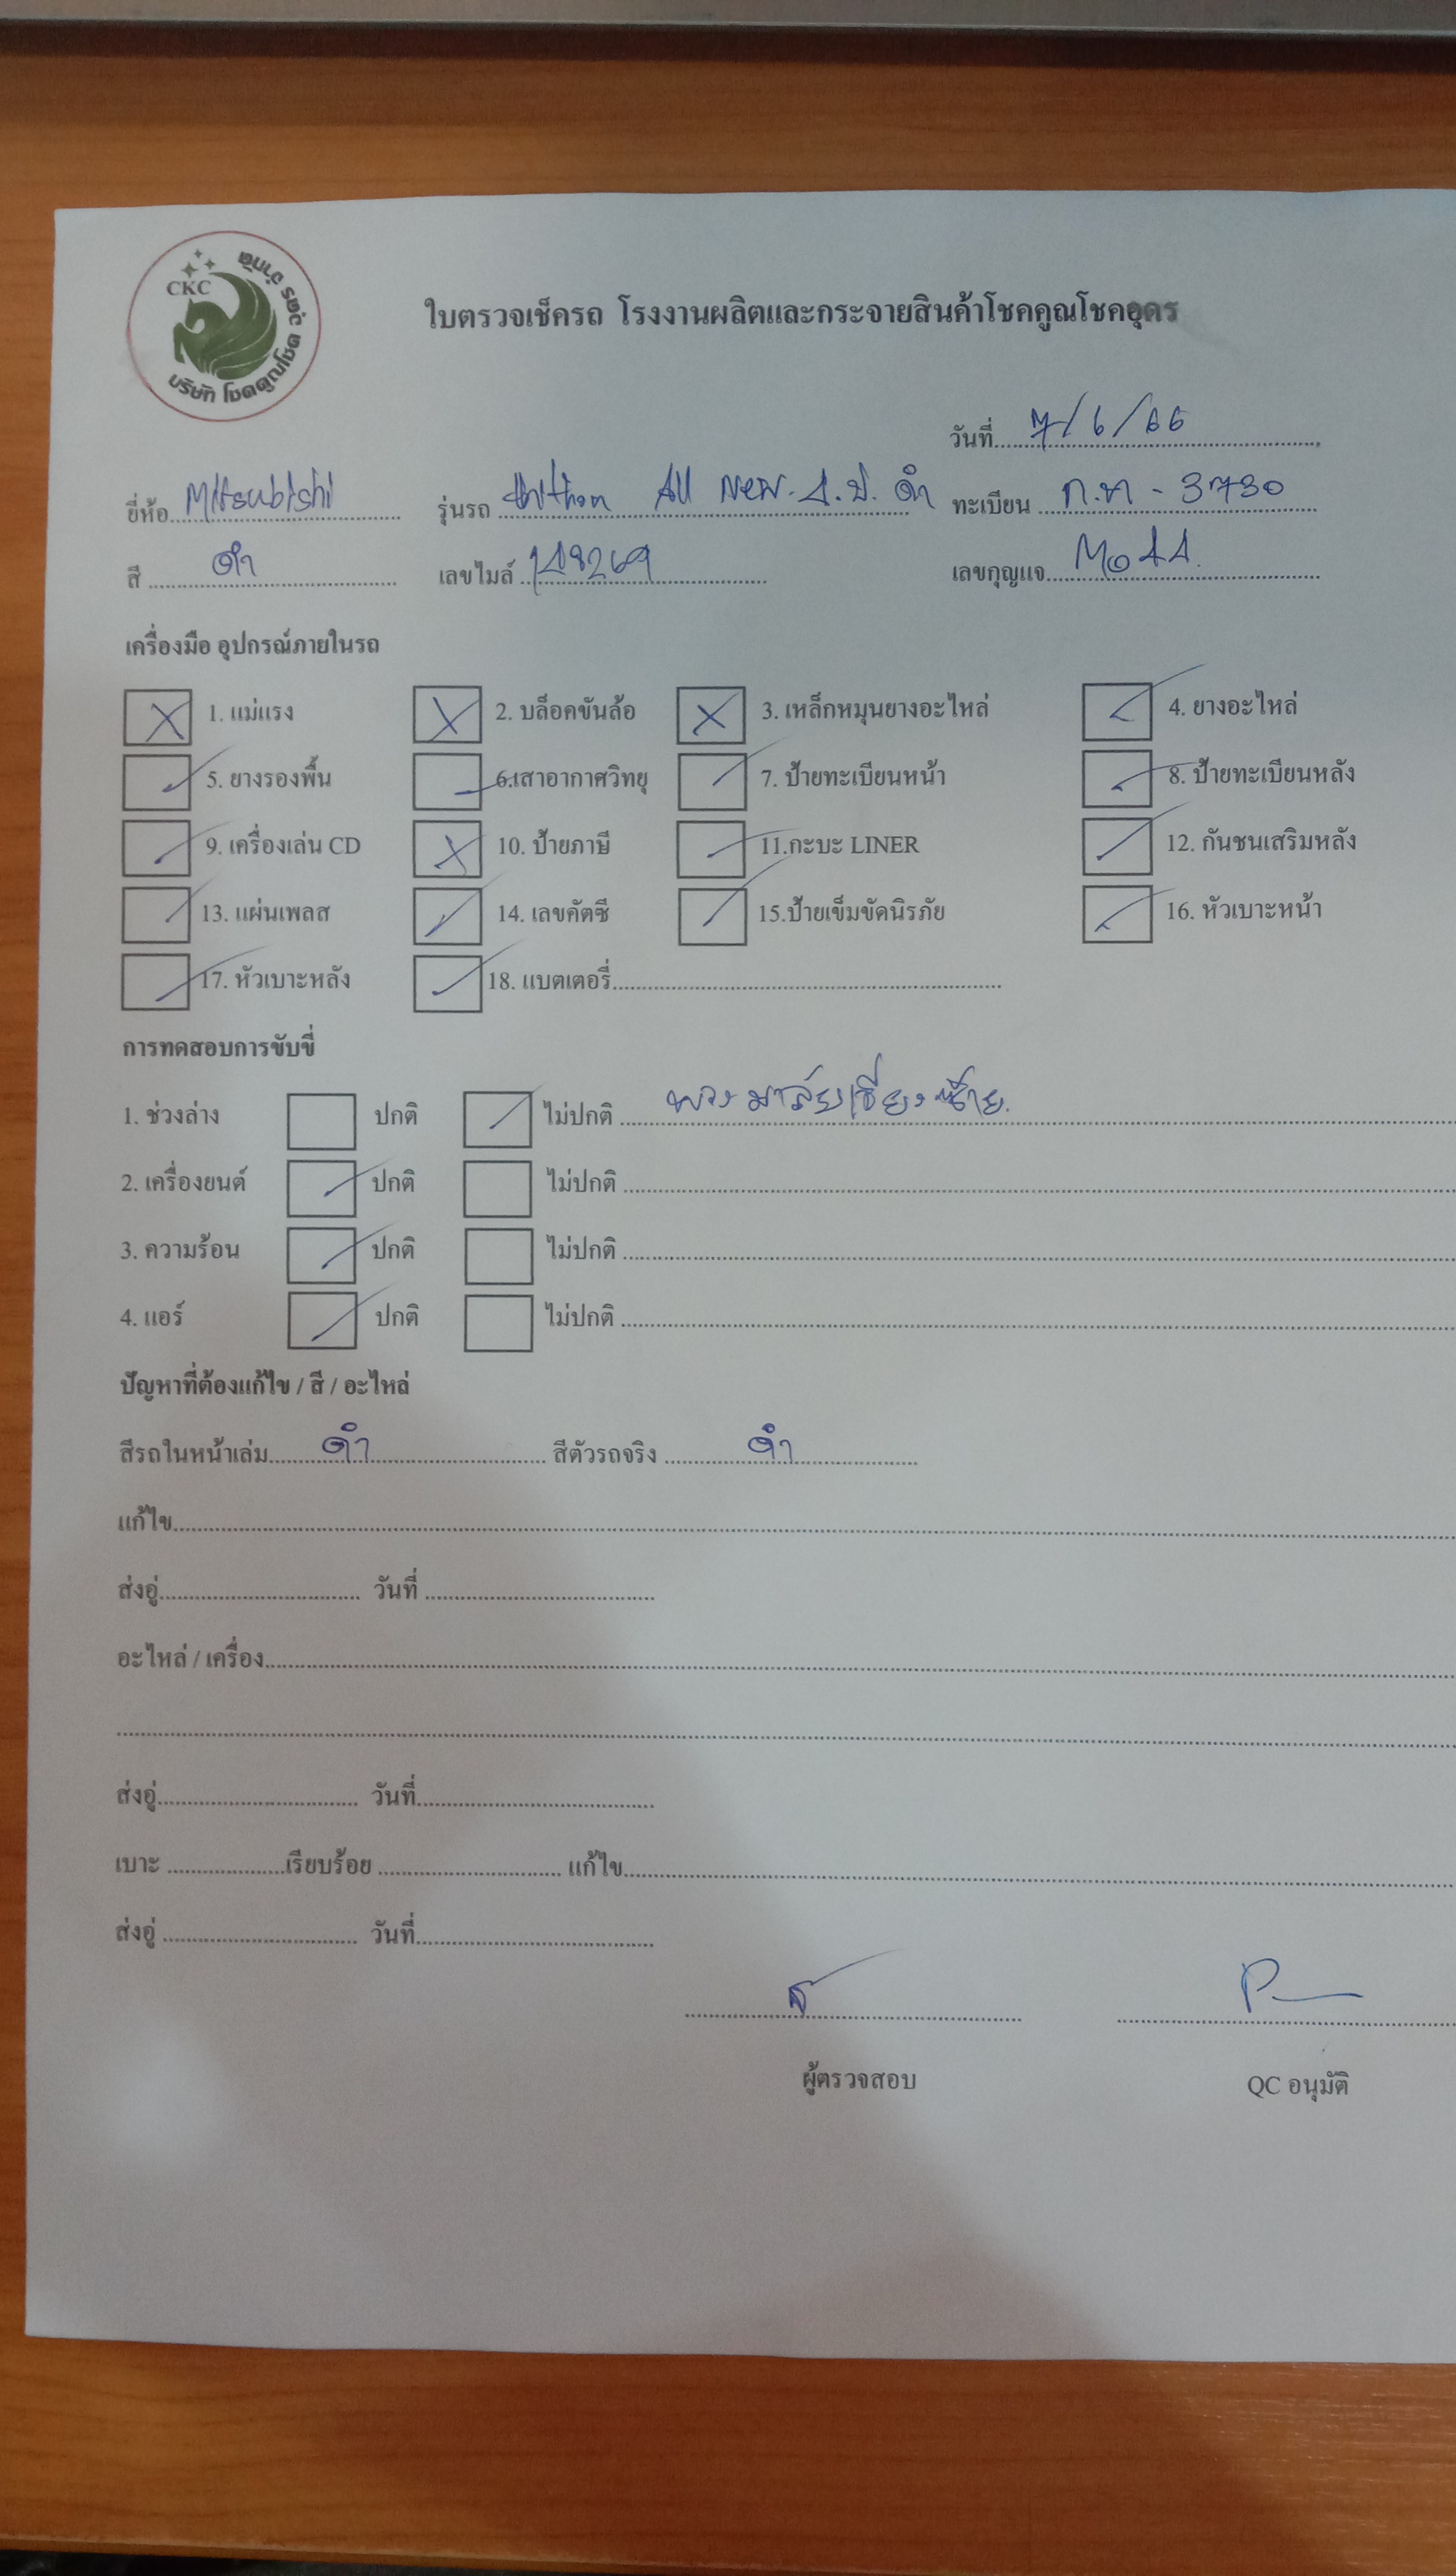 CKC
บริษัท โชคคูณโชค อุดร จำกัด
ใบตรวจเช็ครถ โรงงานผลิตและกระจายสินค้าโชคคูณโชคอุดร
วันที่ 7/6/66
ยี่ห้อ Mitsubishi รุ่นรถ All New ดำ ทะเบียน - 3730
สี ดำ เลขไมล์ 148269 เลขกุญแจ M044
เครื่องมือ อุปกรณ์ภายในรถ
1. แม่แรง 2. บล็อคขันล้อ 3. เหล็กหมุนยางอะไหล่ 4. ยางอะไหล่
5. ยางรองพื้น 6.เสาอากาศวิทยุ 7. ป้ายทะเบียนหน้า 8. ป้ายทะเบียนหลัง
9. เครื่องเล่น CD 10. ป้ายภาษี 11.กะบะ LINER 12. กันชนเสริมหลัง
13. แผ่นเพลส 14. เลขคัตซี 15.ป้ายเข็มขัดนิรภัย 16. หัวเบาะหน้า
17. หัวเบาะหลัง 18. แบตเตอรี่
การทดสอบการขับขี่
1. ช่วงล่าง ปกติ ไม่ปกติ พวงมาลัยเอียงซ้าย.
2. เครื่องยนต์ ปกติ ไม่ปกติ
3. ความร้อน ปกติ ไม่ปกติ
4. แอร์ ปกติ ไม่ปกติ
ปัญหาที่ต้องแก้ไข / สี / อะไหล่
สีรถในหน้าเล่ม ดำ สีตัวรถจริง ดำ
แก้ไข
ส่งอู่ วันที่
อะไหล่ / เครื่อง
ส่งอู่ วันที่
เบาะ เรียบร้อย แก้ไข
ส่งอู่ วันที่
ผู้ตรวจสอบ QC อนุมัติ